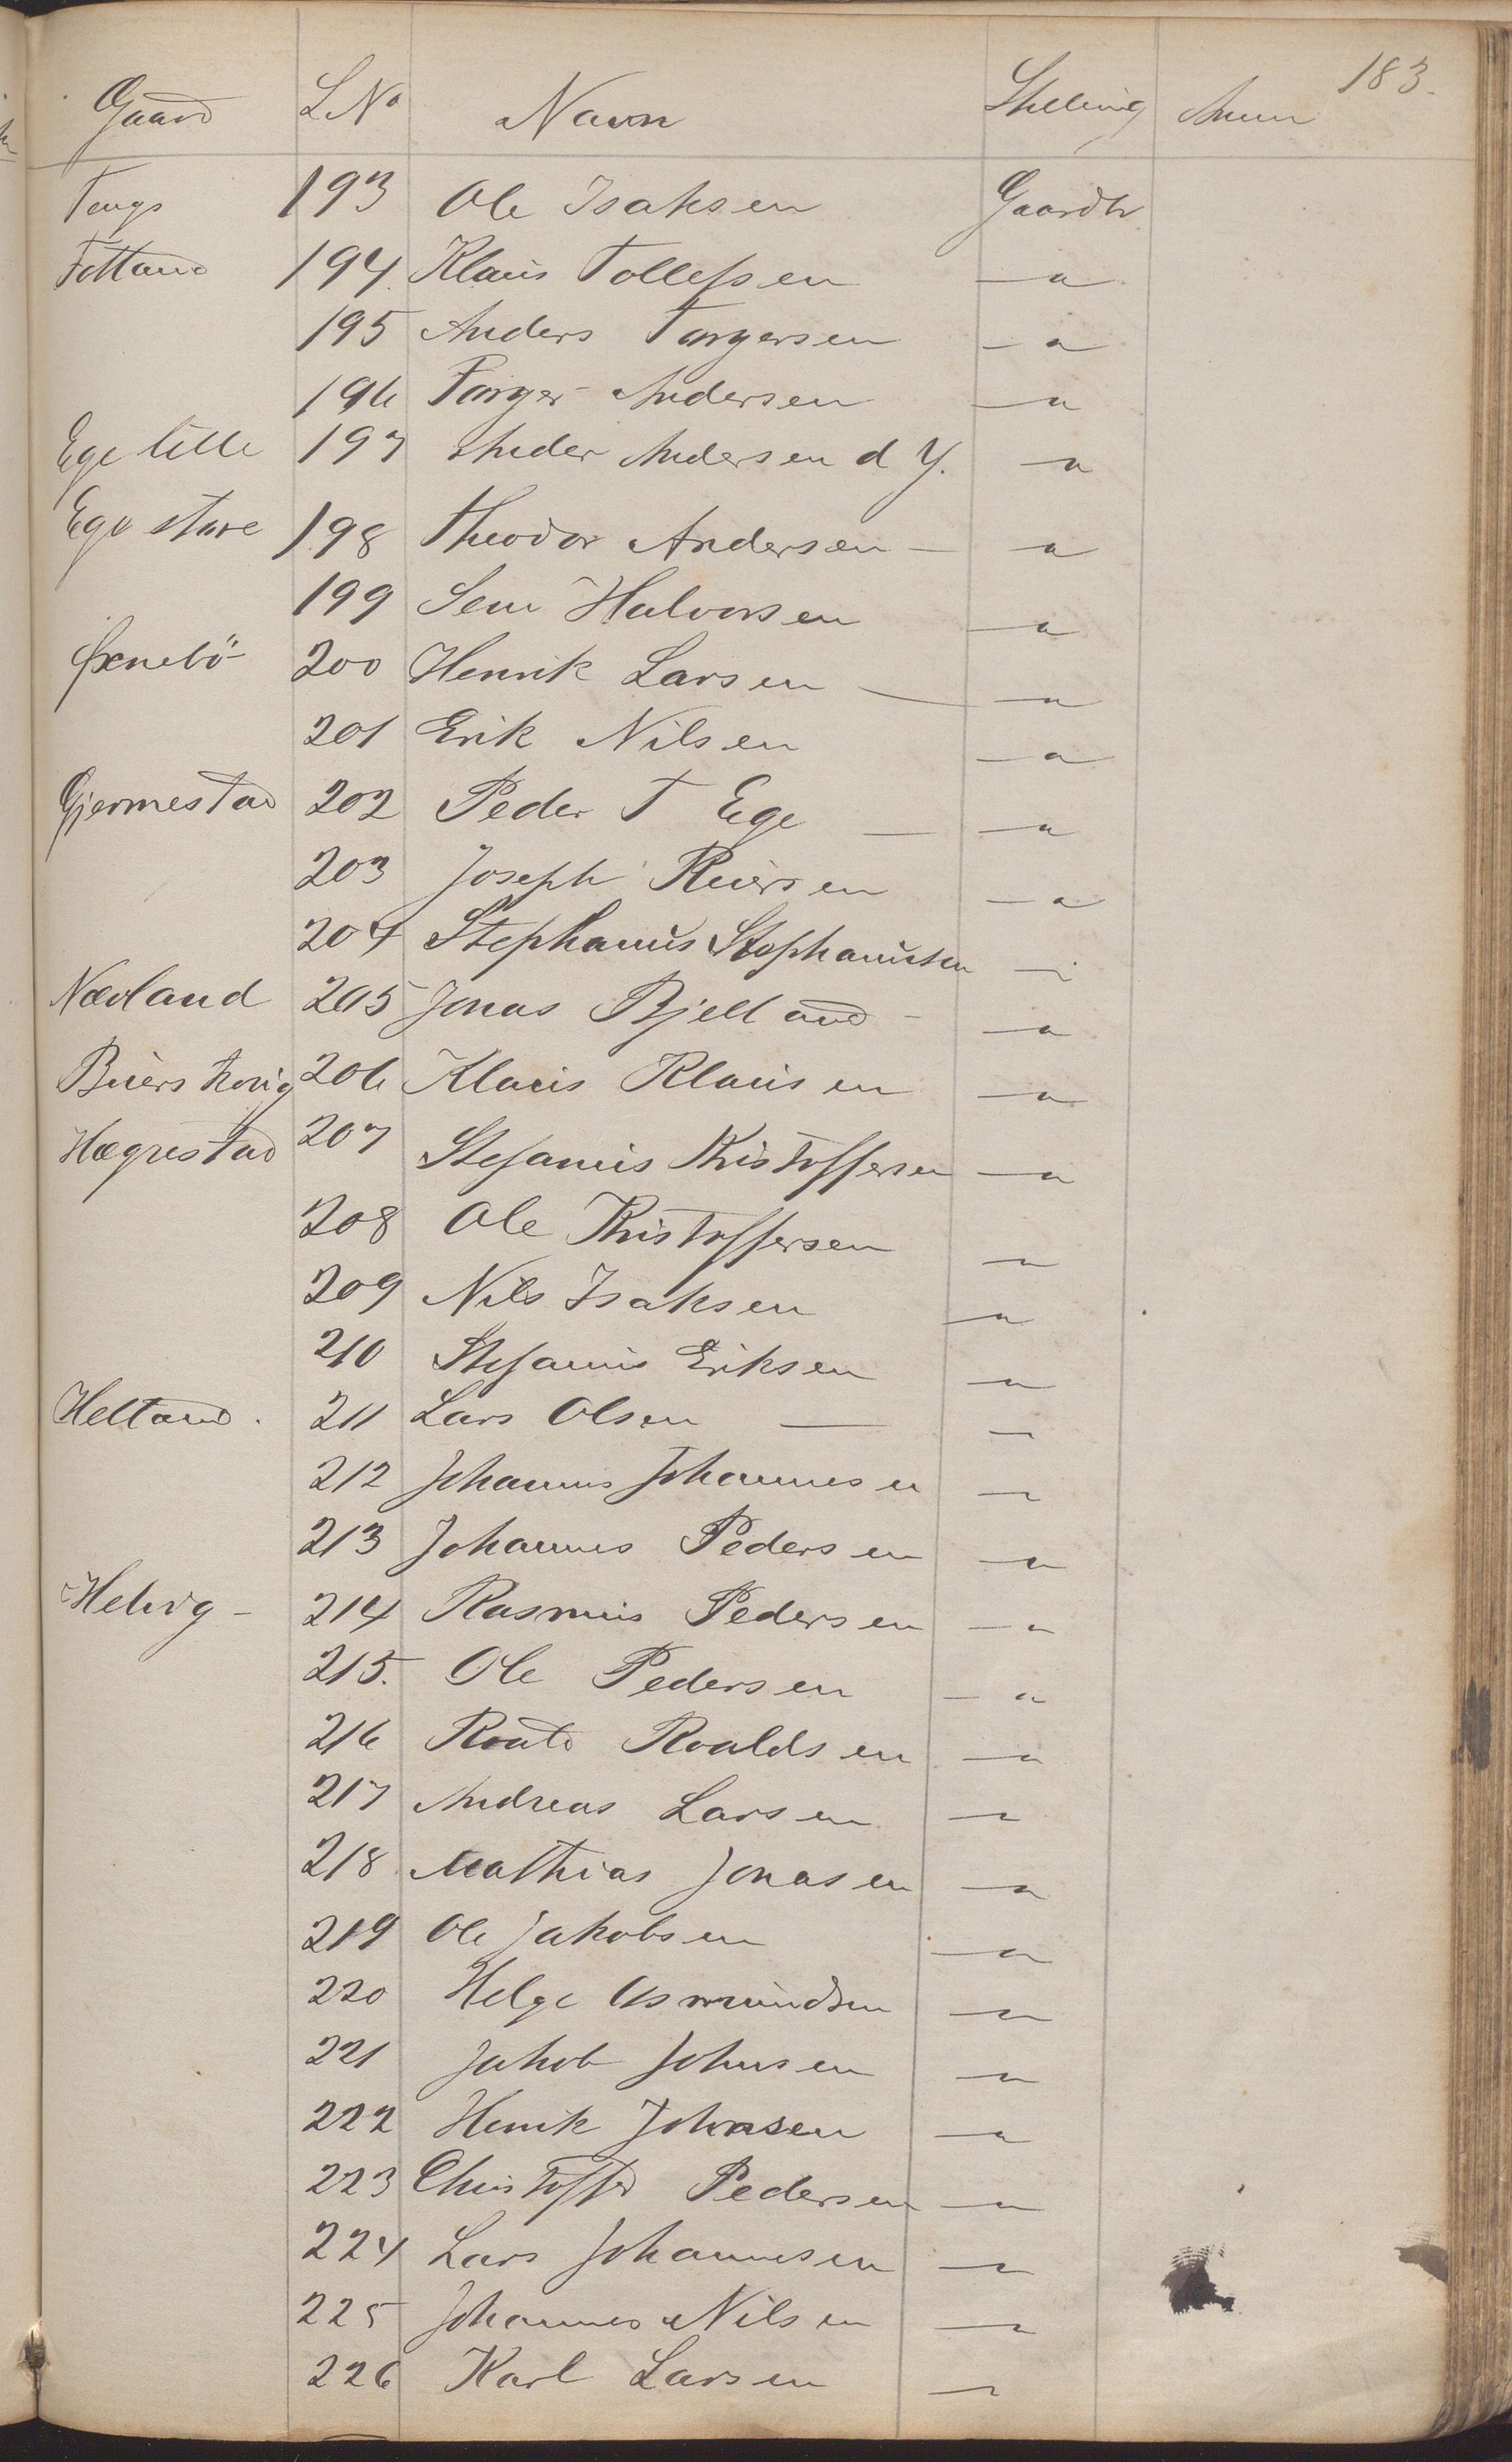 183.
Gaard L No Navn Stilling Anm
Tengs 193 Ole Isaksen Gaardbr
Fotland 194 Klaus Tollefsen — " —
195 Anders Torgersen — " —
196 Torger Andersen — " —
Ege lille 197 Peder Andersen d Y. — " —
Ege store 198 Theodor Andersen — — " —
199 Sem Halvorsen — " —
Øxnebö 200 Henrik Larsen — — " —
201 Erik Nilsen — " —
Gjermestad 202 Peder T Ege — — " —
203 Joseph Reiersen — " —
204 Stephanus Stephanusen — " —
Nævland 205 Jonas Bjelland — — " —
Buershovig 206 Klaus Klausen — " —
Hægrestad 207 Stefanus Kristoffersen — " —
208 Ole Kristoffersen — " —
209 Nils Isaksen — " —
210 Stefanus Eriksen — " —
Helland. 211 Lars Olsen — — " —
212 Johannes Johannesen — " —
213 Johannes Pedersen — " —
Helvig — 214 Rasmus Pedersen — " —
215. Ole Pedersen — " —
216 Roald Roaldsen — " —
217 Andreas Larsen — " —
218 Mathias Jonasen — " —
219 Ole Jakobsen — " —
220 Helge Asmundsen — " —
221 Jakob Johnsen — " —
222 Henrik Johnsen — " —
223 Christoffer Pedersen — " —
224 Lars Johannesen — " —
225 Johannes Nilsen — " —
226 Karl Larsen — " —